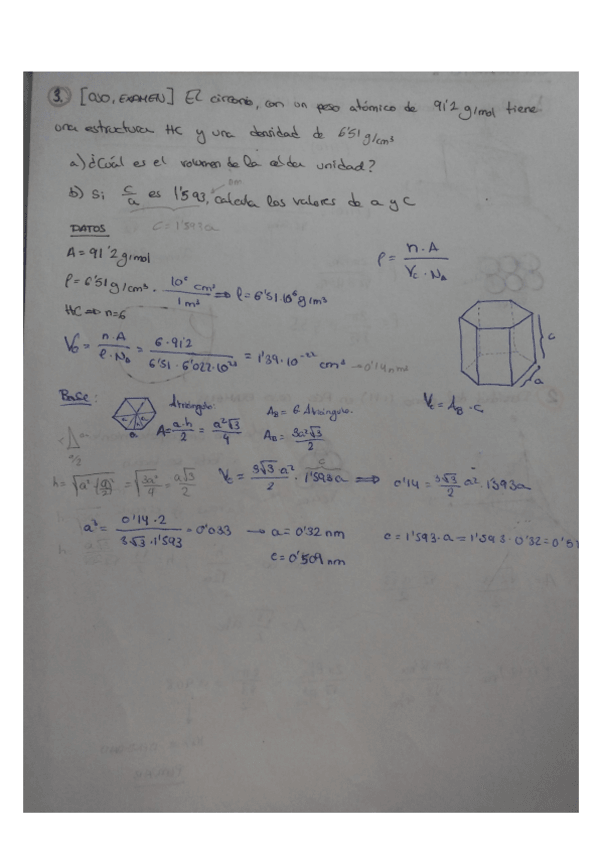 3. [OJO, EXAMEN] El circonio, con un peso atómico de 91'2 g/mol tiene
una estructura HC y una densidad de 6'51 g/cm³
a) ¿Cuál es el volumen de la celda unidad?
b) Si c/a es 1'593, calcula los valores de a y c
DATOS c = 1'593a
A = 91'2 g/mol
ρ = n·A / Vc·NA
ρ = 6'51 g/cm³ · 10⁶ cm³ / 1 m³ ⇒ ρ = 6'51·10⁶ g/m³
HC ⇒ n=6
Vc = n·A / ρ·NA = 6·91'2 / 6'51·6'022·10²³ = 1'39·10⁻²² cm³ → 0'14 nm³
c
a
Base:
a
Atriángulo:
A = a·h / 2 = a²√3 / 4
AB = 6 Atriángulo.
AB = 3a²√3 / 2
Vc = AB · c
a/2
h = √(a² - (a/2)²) = √(3a²/4) = a√3 / 2
c
Vc = 3√3 a² / 2 · 1'593a ⇒ 0'14 = 3√3 / 2 a² · 1'593a
a³ = 0'14·2 / 3√3·1'593 = 0'033 → a = 0'32 nm
c = 1'593·a = 1'593·0'32 = 0'51
c = 0'509 nm